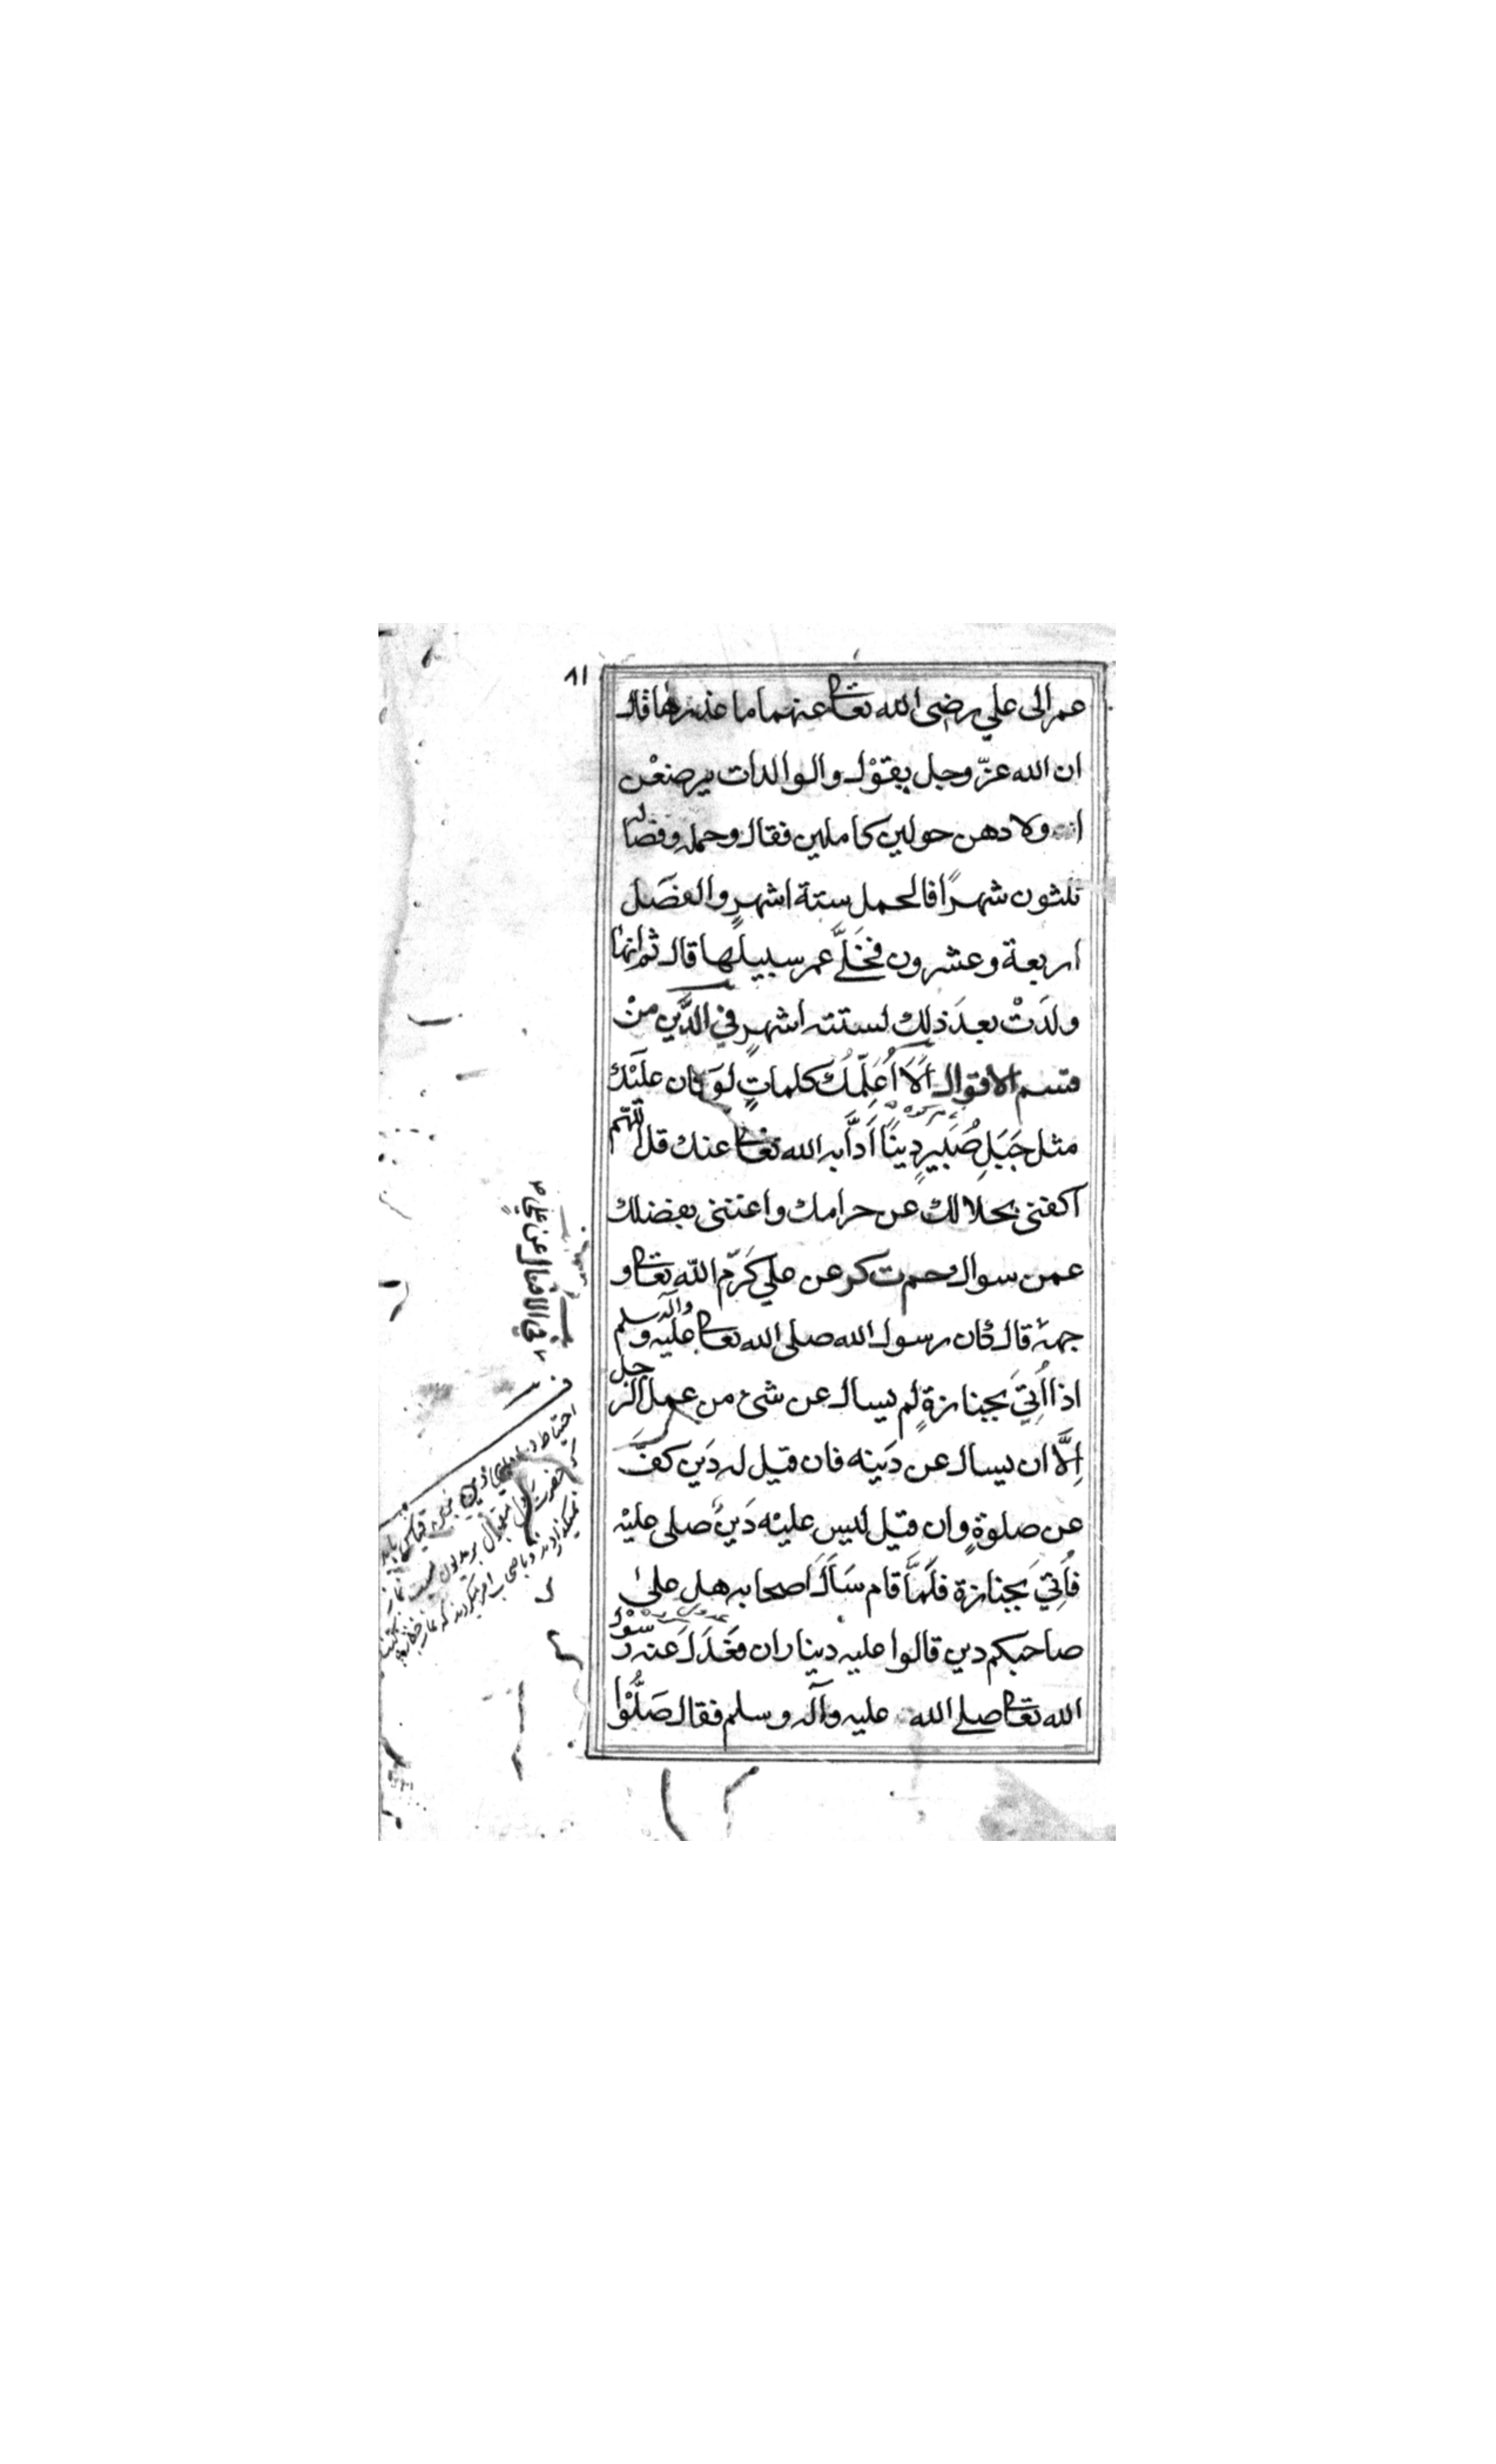 ٨١
عمر الى علي رضى الله تعالى عنهما ما عذرها قال
ان الله عزّ وجل يقوْل والوالدات يرضعْن
اولادهن حولين كاملين فقال وحمله وفصاله
ثلثون شهرًا فالحمل ستة اشهرٍ والفصَل
اربعة وعشرون فخَلَّى عمر سبيلها قال ثم إنها
ولدَتْ بعدَ ذلك لستته اشهرٍ في الدَّينِ منْ
قسم الاقوال اَلَا اُعَلِّمُكَ كلماتٍ لوَ كان علَيْك
مثل جَبَلِ صُبَيرٍ دينًا اَدَّا به الله تعالى عنك قل اللّهم
اكفنى بحلالك عن حرامك واغننى بفضلك
عمن سواك حم ت ك عن علي كرّم اللّه تعالى و
جههٗ قال كان رسول الله صلى الله تعالى عليه وآله وسلم
اذا اُتِيَ بجنازةٍ لم يسال عن شئ من عمل الرجل
اِلَّا ان يسال عن دَينه فان قيل له دَين كفَّ
عن صلوةٍ وان قيل ليس عليْه دَينٌ صلى عليْه
فاُتِيَ بجنازة فلمَّا قام سَاَلَ اصحابه هل علىٰ
صاحبكم دين قالوا عليه ديناران فعَدَلَ عنه رسوْل
الله تعالى صلى الله عليه وآله وسلم فقال صَلُّوْا
في الاقبال عن علي